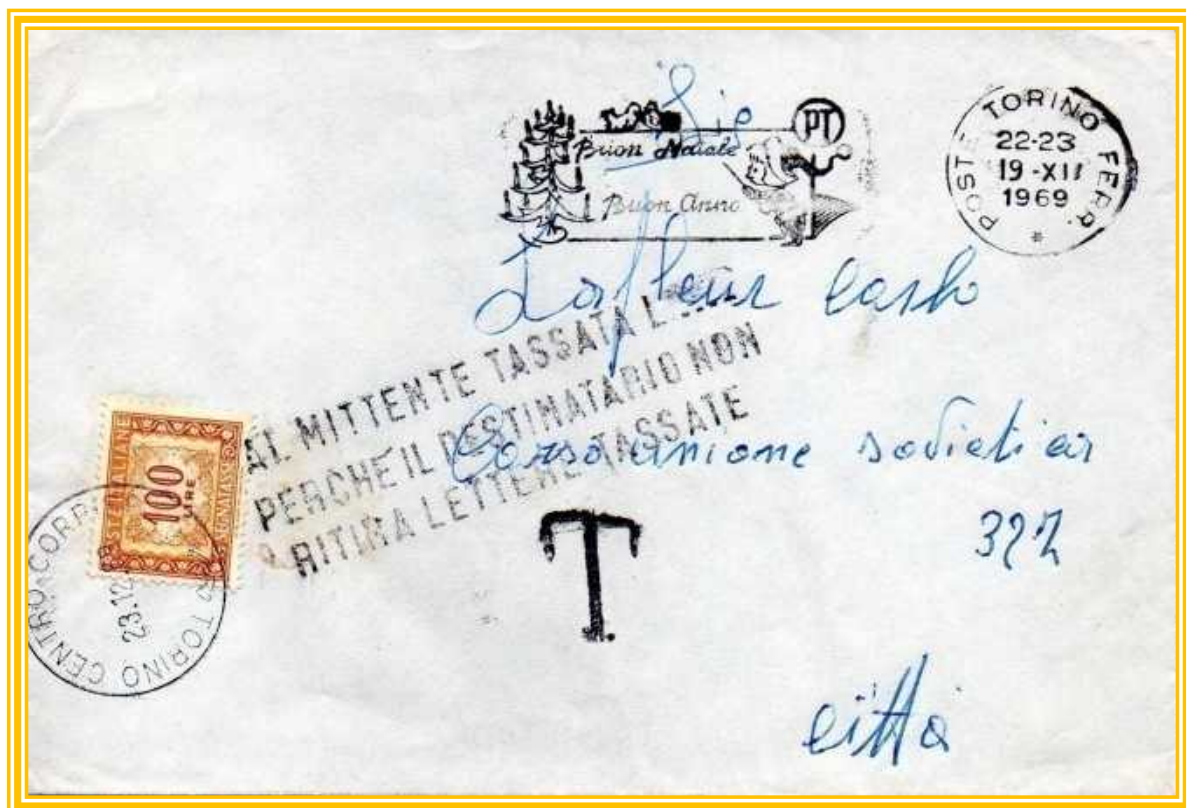 Sig
Buon Natale
PT
Buon Anno
POSTE TORINO FERR.
22-23
19-XII
1969
*
Laffleur Carlo
AL MITTENTE TASSATA L....
PERCHE IL DESTINATARIO NON
RITIRA LETTERE TASSATE
Corso unione sovietica
322
T.
città
100
LIRE
TORINO CENTRO CORR
23.12